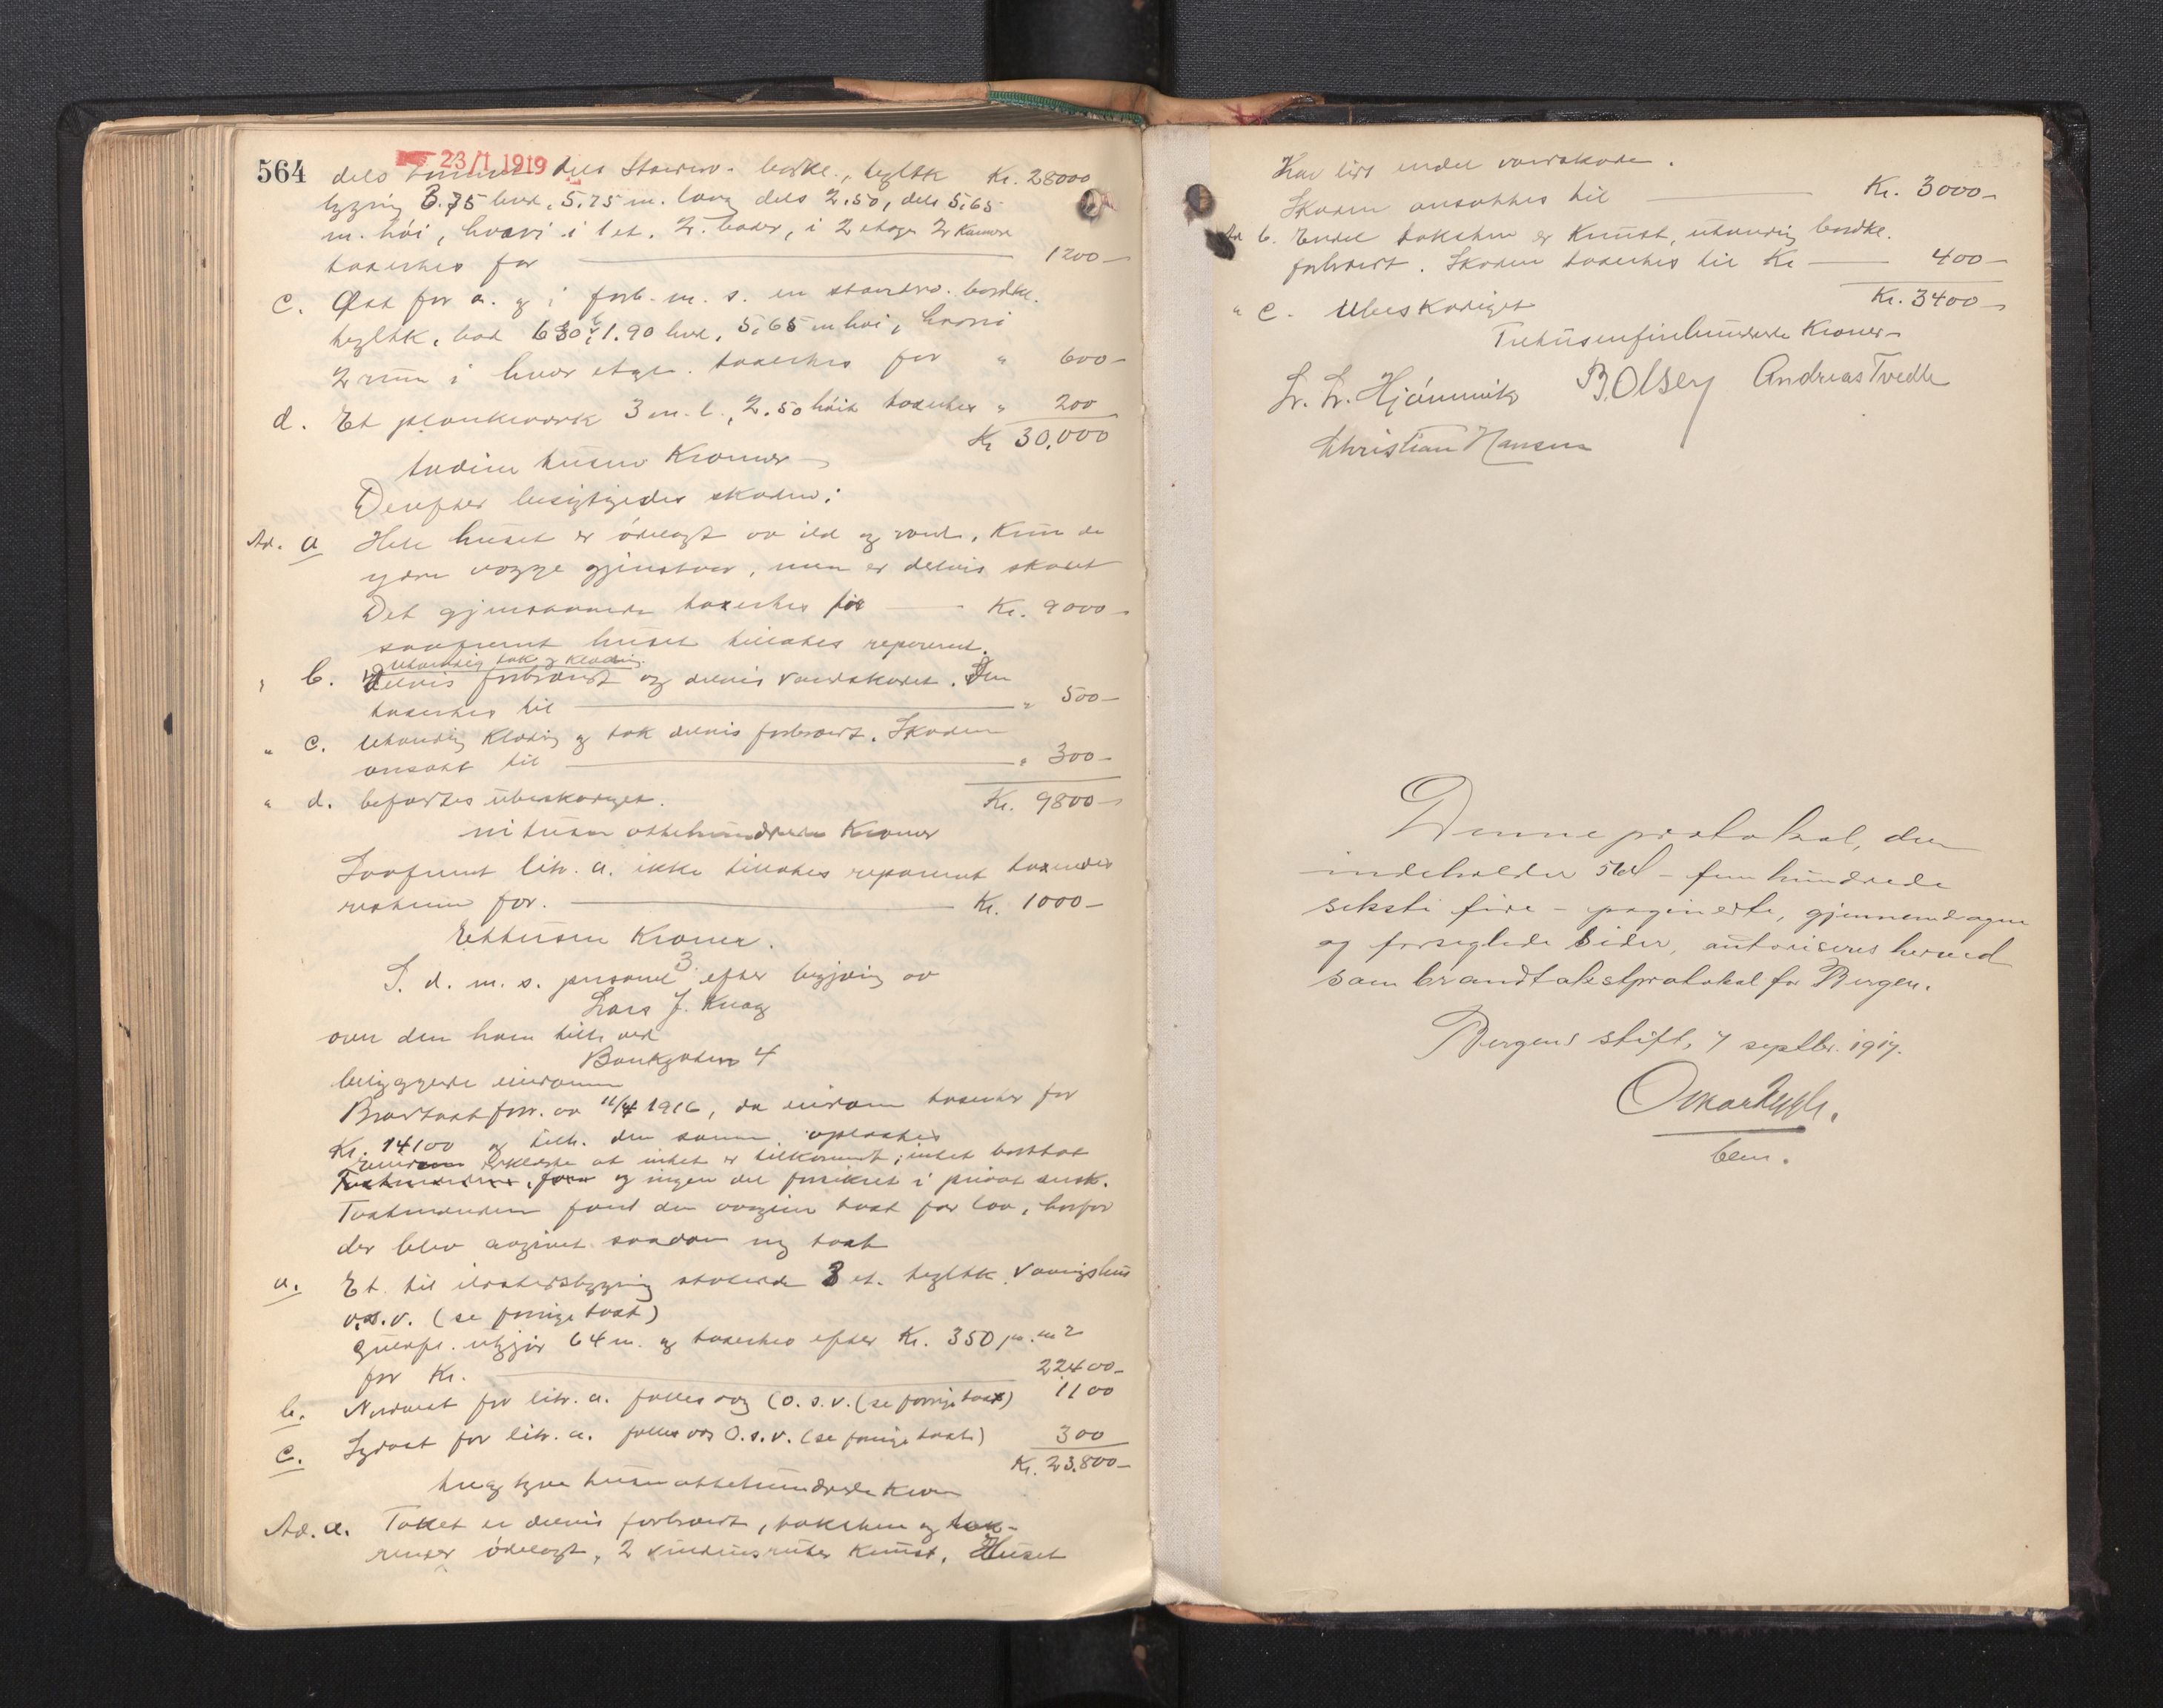 564
23/1 1919
dels tømmer dels Staverv. bordkl., teglthk Kr. 28000
bygning 3.75 bred, 5.75 m. lang dels 2.50, dels 5.65
m. høi, hvori i 1 et. 2 boder, i 2 etage 2 kamre
taxertes for 1200 -
c. Øst for a. og i forb. m. s. en staverv. bordkl.
teglthk. bod 1.90 bred, 5.65 m høi, hvori
2 rum i hver etage. taxertes for " 600 -
d. Et plankeverk 3 m. l., 2.50 høit taxertes " 200
Kr 30.000
tredive tusen Kroner
Derefter besigtigedes skaden:
Ad. a Hele huset er ødelagt av ild og vand, kun de
ydre vægge gjenstaar, men er delvis skadet
Det gjenværende taxertes for Kr. 9000 -
saafremt huset tillates reparert.
utvendig tak og klædning
" b. delvis forbrændt og delvis vandskadet. Den
taxertes til " 500 -
" c. Utvendig klædning og tak delvis forbrændt. Skaden
ansatt til " 300 -
" d. befandtes ubeskadiget. Kr. 9800 -
ni tusen ottehundrede Kroner
Saafremt litr. a. ikke tillates reparert taxeredes
restene for. Kr. 1000 -
Ettusen Kroner.
S. d. m. s. personel 3 efter begjæring av
Lars J. Knag
over den ham tilh. ved
Bankgaten 4
beliggende eiendom
Brandtaxtforr. av 11/4 1916, da eiendom taxertes for
Kr. 14100 og tilh. den samme, oplæstes
erklærte at intet er tilkommet, intet borttat
og ingen del forsikret i privat selsk.
Taxtmændene fandt den avgivne taxt for lav, hvorfor
der blev avgivet saadan ny taxt
a. Et til ildstedsbygning støtende 3 et. teglthk. vaaningshus
o.s.v. (se forrige taxt)
Grundfl. utgjør 64 m. og taxertes efter Kr. 350 pr. m2
for Kr. 22400 -
b. Nordvest for litr. a. fælles væg (o.s.v. (se forrige taxt) 1100
c. Sydøst for litr. a. fælles væg o.s.v. (se forrige taxt) 300
Kr. 23.800 -
treogtyve tusen ottehundrede Kroner
Ad. a. Taket er delvis forbrændt, taksten og tak-
render ødelagt, 2 vinduesruter knust. Huset
Har lidt endel vandskade.
Skaden ansættes til Kr. 3000 -
Ad b. Endel taksten er knust, utvendig bordkl.
forbrændt. Skaden taxertes til Kr 400 -
" c. Ubeskadiget Kr. 3400 -
Tretusenfirehundrede Kroner -
L. L. Hjømmik B. Olsen Andreas Tvedt
Christian Hansen
Denne protokol, der
indeholder 564 - fem hundrede
seksti fire - paginerte, gjennemdragne
og forseglede sider, autoriseres herved
som brandtakstprotokol for Bergen.
Bergens stift, 7 septbr. 1917.
bem.